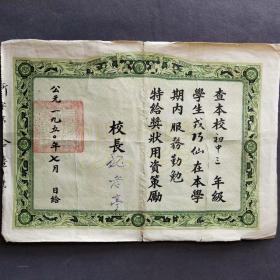 查本校初中三年級
學生戎巧仙在本學
期內服務勤勉
特給獎狀用資策勵
校長
公元一九五〇年七月 日給